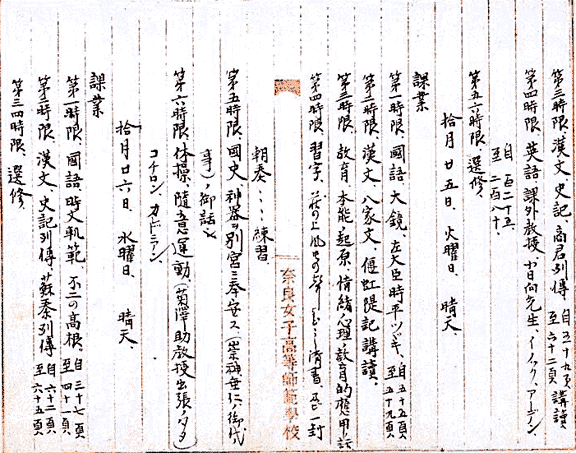 第三時限、漢文、史記、商君列傳 自五十九頁 至六十二頁 講讀、
第四時限、英語、課外教授、日向先生、
自二百二十五、
至二百八十、
第五六時限、選修、
拾月廿五日、火曜日、晴天、
課業
第一時限、國語、大鏡、左大臣時平ツヾキ、自五十五頁 至五十九頁
第二時限、漢文、八家文、偃虹隄記講讀、
第三時限、教育、本能ノ起原、情緒心理ノ教育的應用
第四時限、習字、清書、
奈良女子高等師範學校
朝奏……練習、
第五時限、國史、神器ヲ別宮ニ奉安ス、(崇神垂仁ノ御代ノ
事)ノ御話
第六時限、体操、隨意運動(菊澤助教授出張ノタメ)
コチロン、カドニアン、
拾月廿六日、水曜日、晴天、
課業
第一時限、國語、時文軌範、不二の高根、自三十七頁 至四十一頁
第二時限、漢文、史記列傳、蘇秦列傳 自六十二頁、 至六十五頁、
第三四時限、選修、